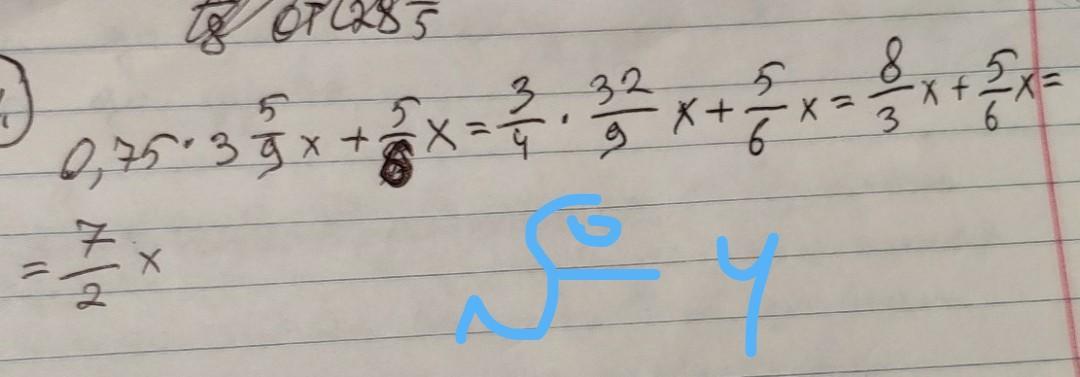 18 от 28 5
0,75 · 3 5/9 x + 5/6 x = 3/4 · 32/9 x + 5/6 x = 8/3 x + 5/6 x =
= 7/2 x
№ 4